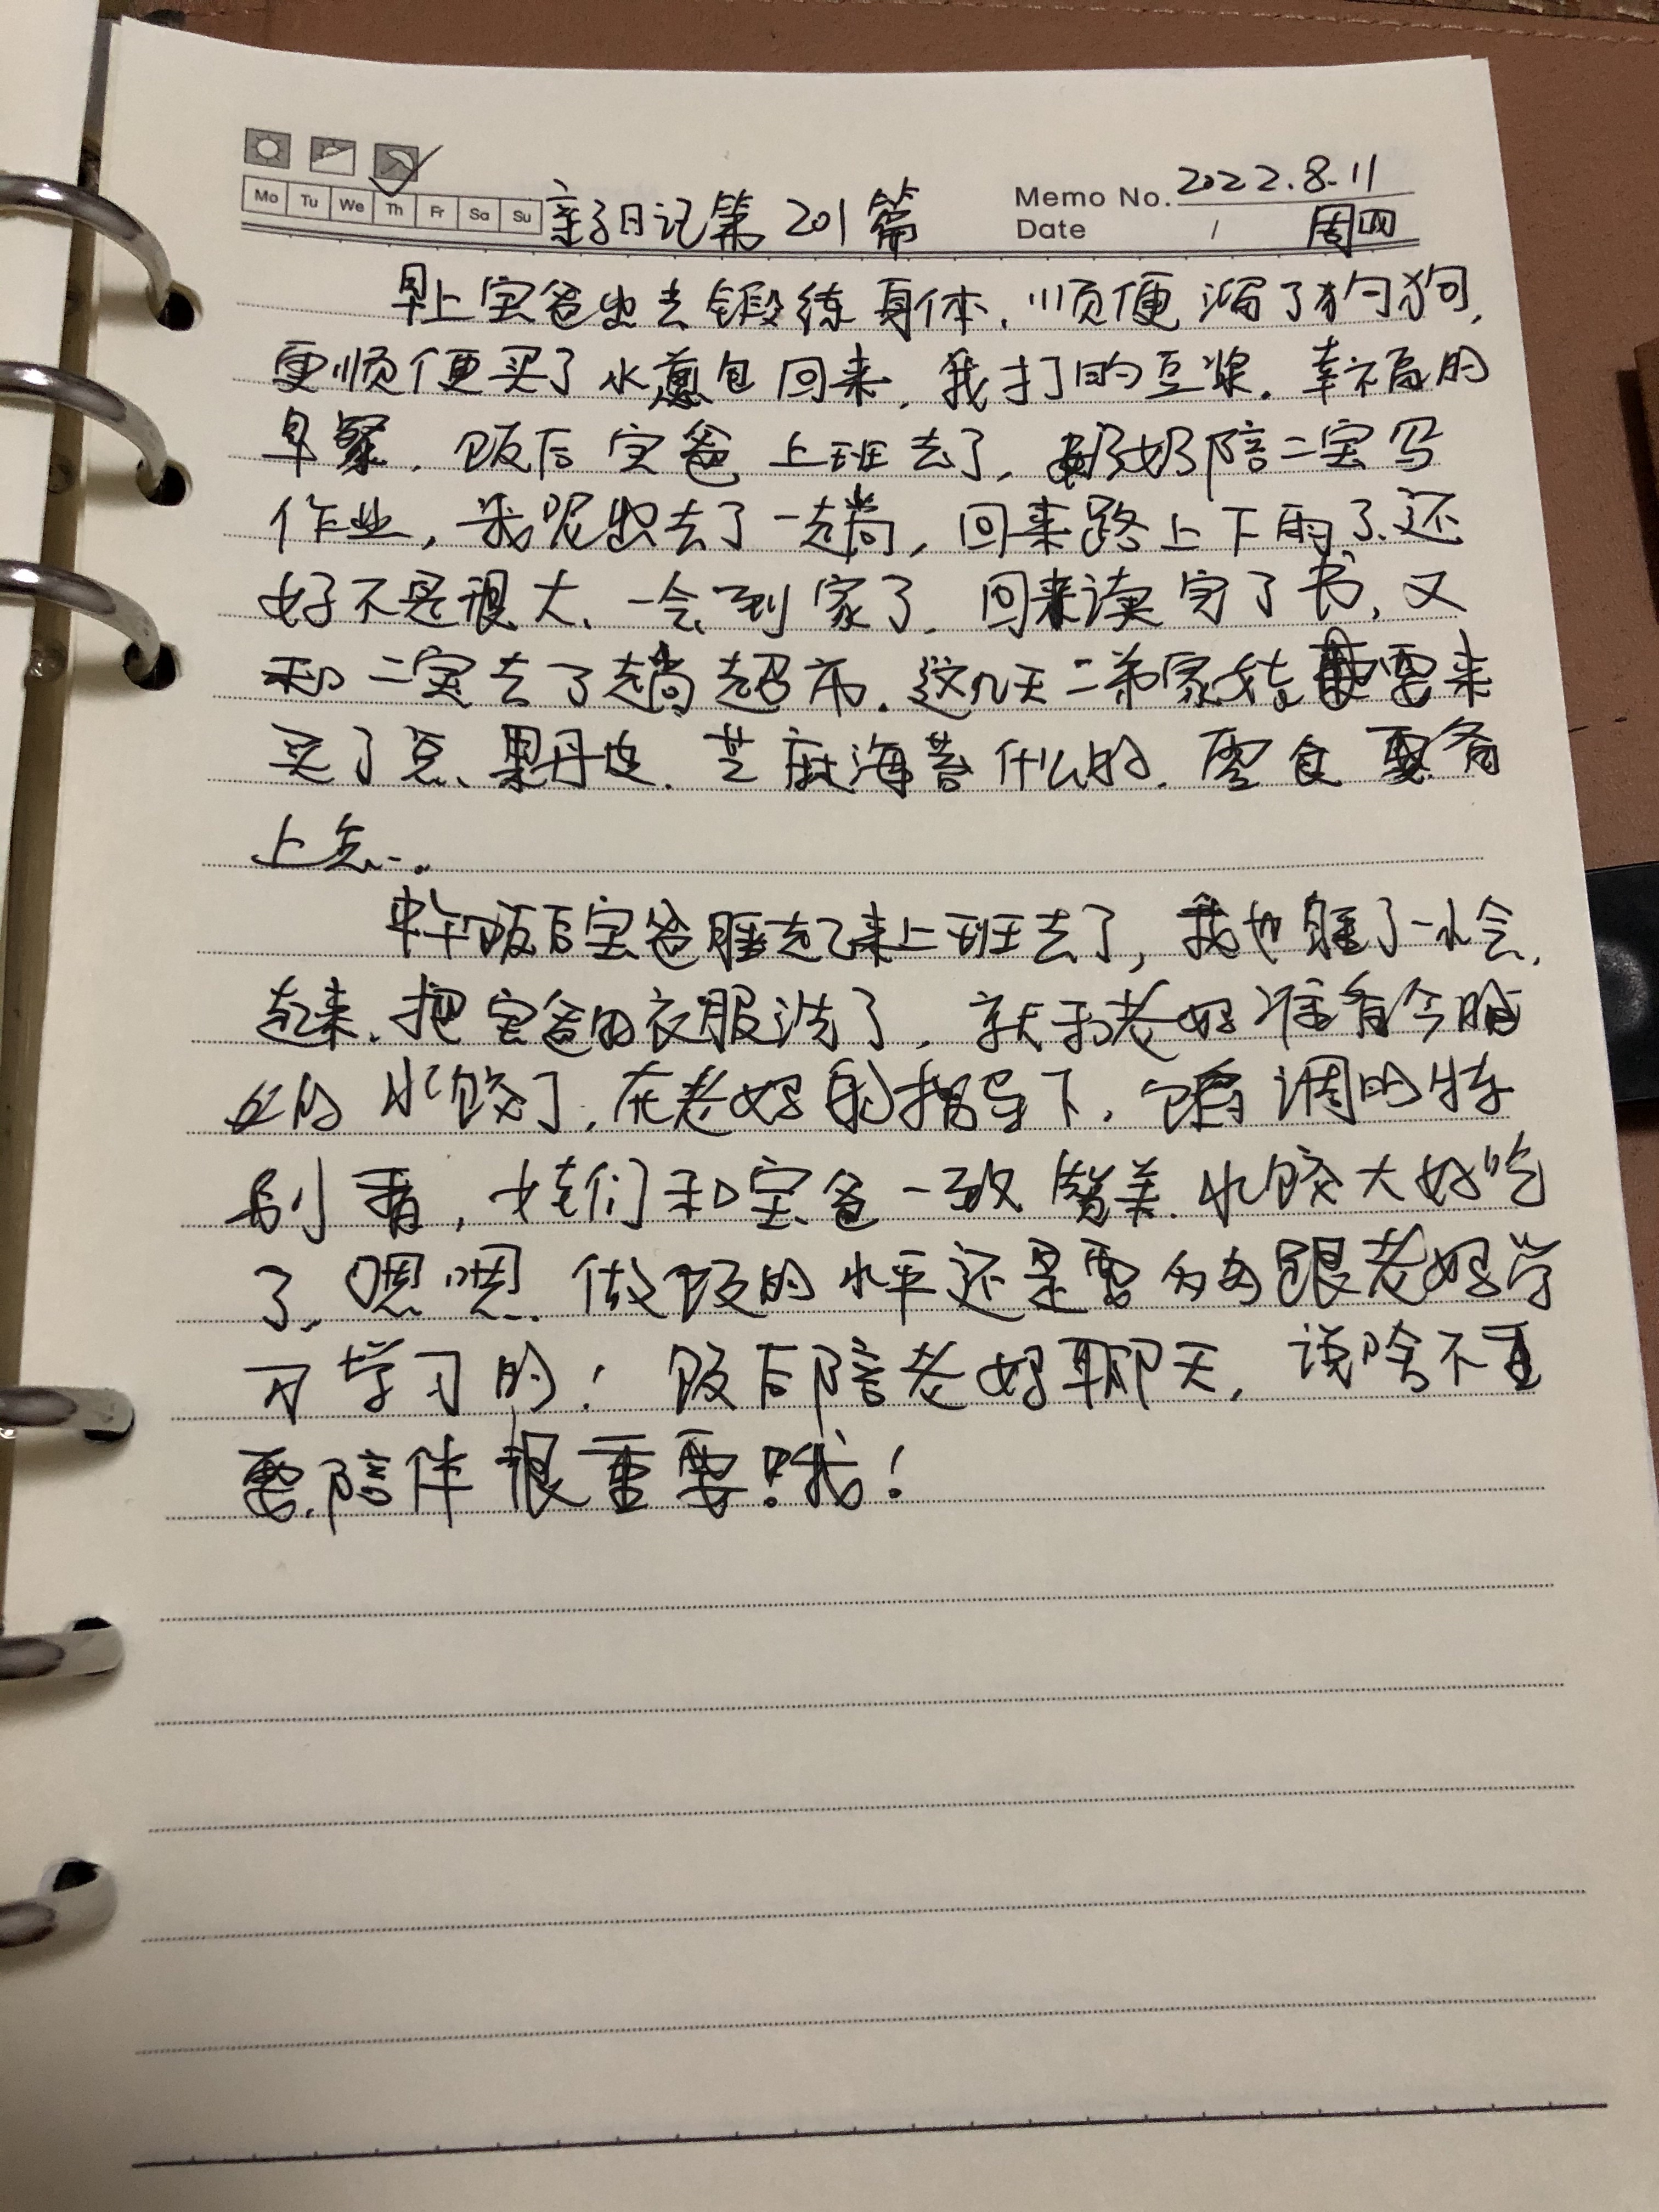 Mo Tu We Th Fr Sa Su
亲子日记第201篇
Memo No. 2022.8.11
Date / 周四
早上宝爸出去锻练身体,顺便溜了狗狗,
更顺便买了水煎包回来,我打的豆浆.幸福的
早餐.饭后宝爸上班去了,奶奶陪二宝写
作业,我呢出去了一趟,回来路上下雨了.还
好不是很大、一会到家了.回来读完了书,又
和二宝去了趟超市.这几天二弟家娃要来
买了点、果丹皮.芝麻海苔什么的.零食要备
上点..
中午饭后宝爸睡起来上班去了,我也睡了一小会,
起来.把宝爸的衣服洗了.就和老妈准备今晚
的水饺了.在老妈的指导下.馅调的特
别香,娃们和宝爸一致赞美.水饺太好吃
了.嗯嗯.做饭的水平还是要多多跟老妈学
习学习的!饭后陪老妈聊天,说啥不重
要.陪伴很重要!哦!